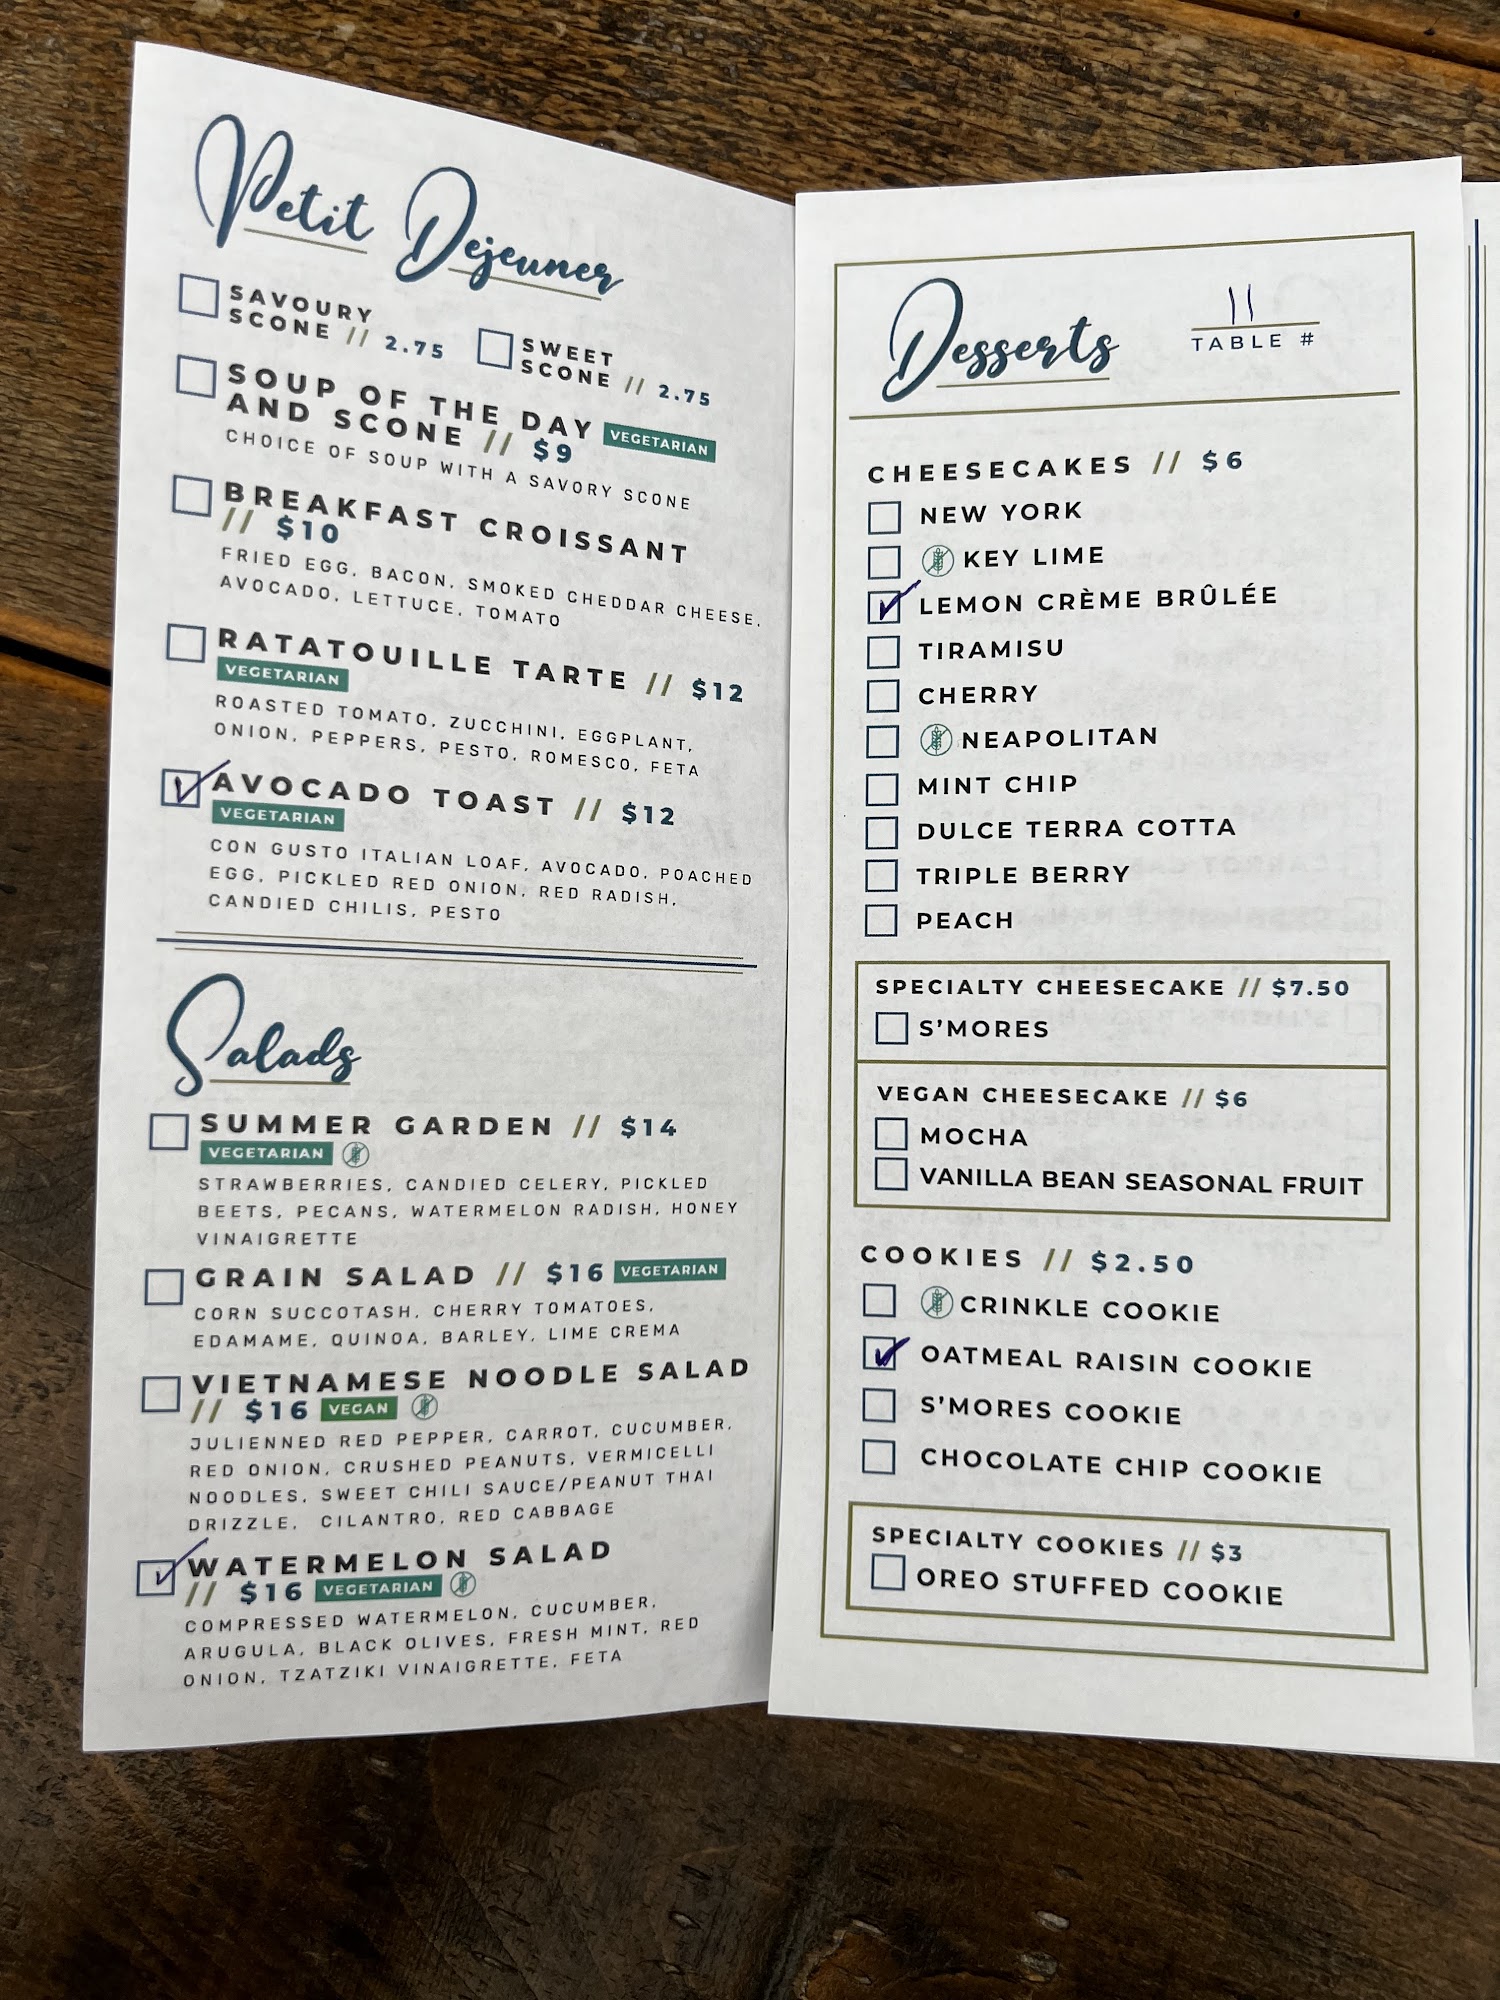 Petit Dejeuner
SAVOURY
SCONE // 2.75
SWEET
SCONE // 2.75
SOUP OF THE DAY VEGETARIAN
AND SCONE // $9
CHOICE OF SOUP WITH A SAVORY SCONE
BREAKFAST CROISSANT
// $10
FRIED EGG, BACON, SMOKED CHEDDAR CHEESE,
AVOCADO, LETTUCE, TOMATO
RATATOUILLE TARTE // $12
VEGETARIAN
ROASTED TOMATO, ZUCCHINI, EGGPLANT,
ONION, PEPPERS, PESTO, ROMESCO, FETA
AVOCADO TOAST // $12
VEGETARIAN
CON GUSTO ITALIAN LOAF, AVOCADO, POACHED
EGG, PICKLED RED ONION, RED RADISH,
CANDIED CHILIS, PESTO
Salads
SUMMER GARDEN // $14
VEGETARIAN
STRAWBERRIES, CANDIED CELERY, PICKLED
BEETS, PECANS, WATERMELON RADISH, HONEY
VINAIGRETTE
GRAIN SALAD // $16 VEGETARIAN
CORN SUCCOTASH, CHERRY TOMATOES,
EDAMAME, QUINOA, BARLEY, LIME CREMA
VIETNAMESE NOODLE SALAD
// $16 VEGAN
JULIENNED RED PEPPER, CARROT, CUCUMBER,
RED ONION, CRUSHED PEANUTS, VERMICELLI
NOODLES, SWEET CHILI SAUCE/PEANUT THAI
DRIZZLE, CILANTRO, RED CABBAGE
WATERMELON SALAD
// $16 VEGETARIAN
COMPRESSED WATERMELON, CUCUMBER,
ARUGULA, BLACK OLIVES, FRESH MINT, RED
ONION, TZATZIKI VINAIGRETTE, FETA
Desserts
11
TABLE #
CHEESECAKES // $6
NEW YORK
KEY LIME
LEMON CRÈME BRÛLÉE
TIRAMISU
CHERRY
NEAPOLITAN
MINT CHIP
DULCE TERRA COTTA
TRIPLE BERRY
PEACH
SPECIALTY CHEESECAKE // $7.50
S'MORES
VEGAN CHEESECAKE // $6
MOCHA
VANILLA BEAN SEASONAL FRUIT
COOKIES // $2.50
CRINKLE COOKIE
OATMEAL RAISIN COOKIE
S'MORES COOKIE
CHOCOLATE CHIP COOKIE
SPECIALTY COOKIES // $3
OREO STUFFED COOKIE